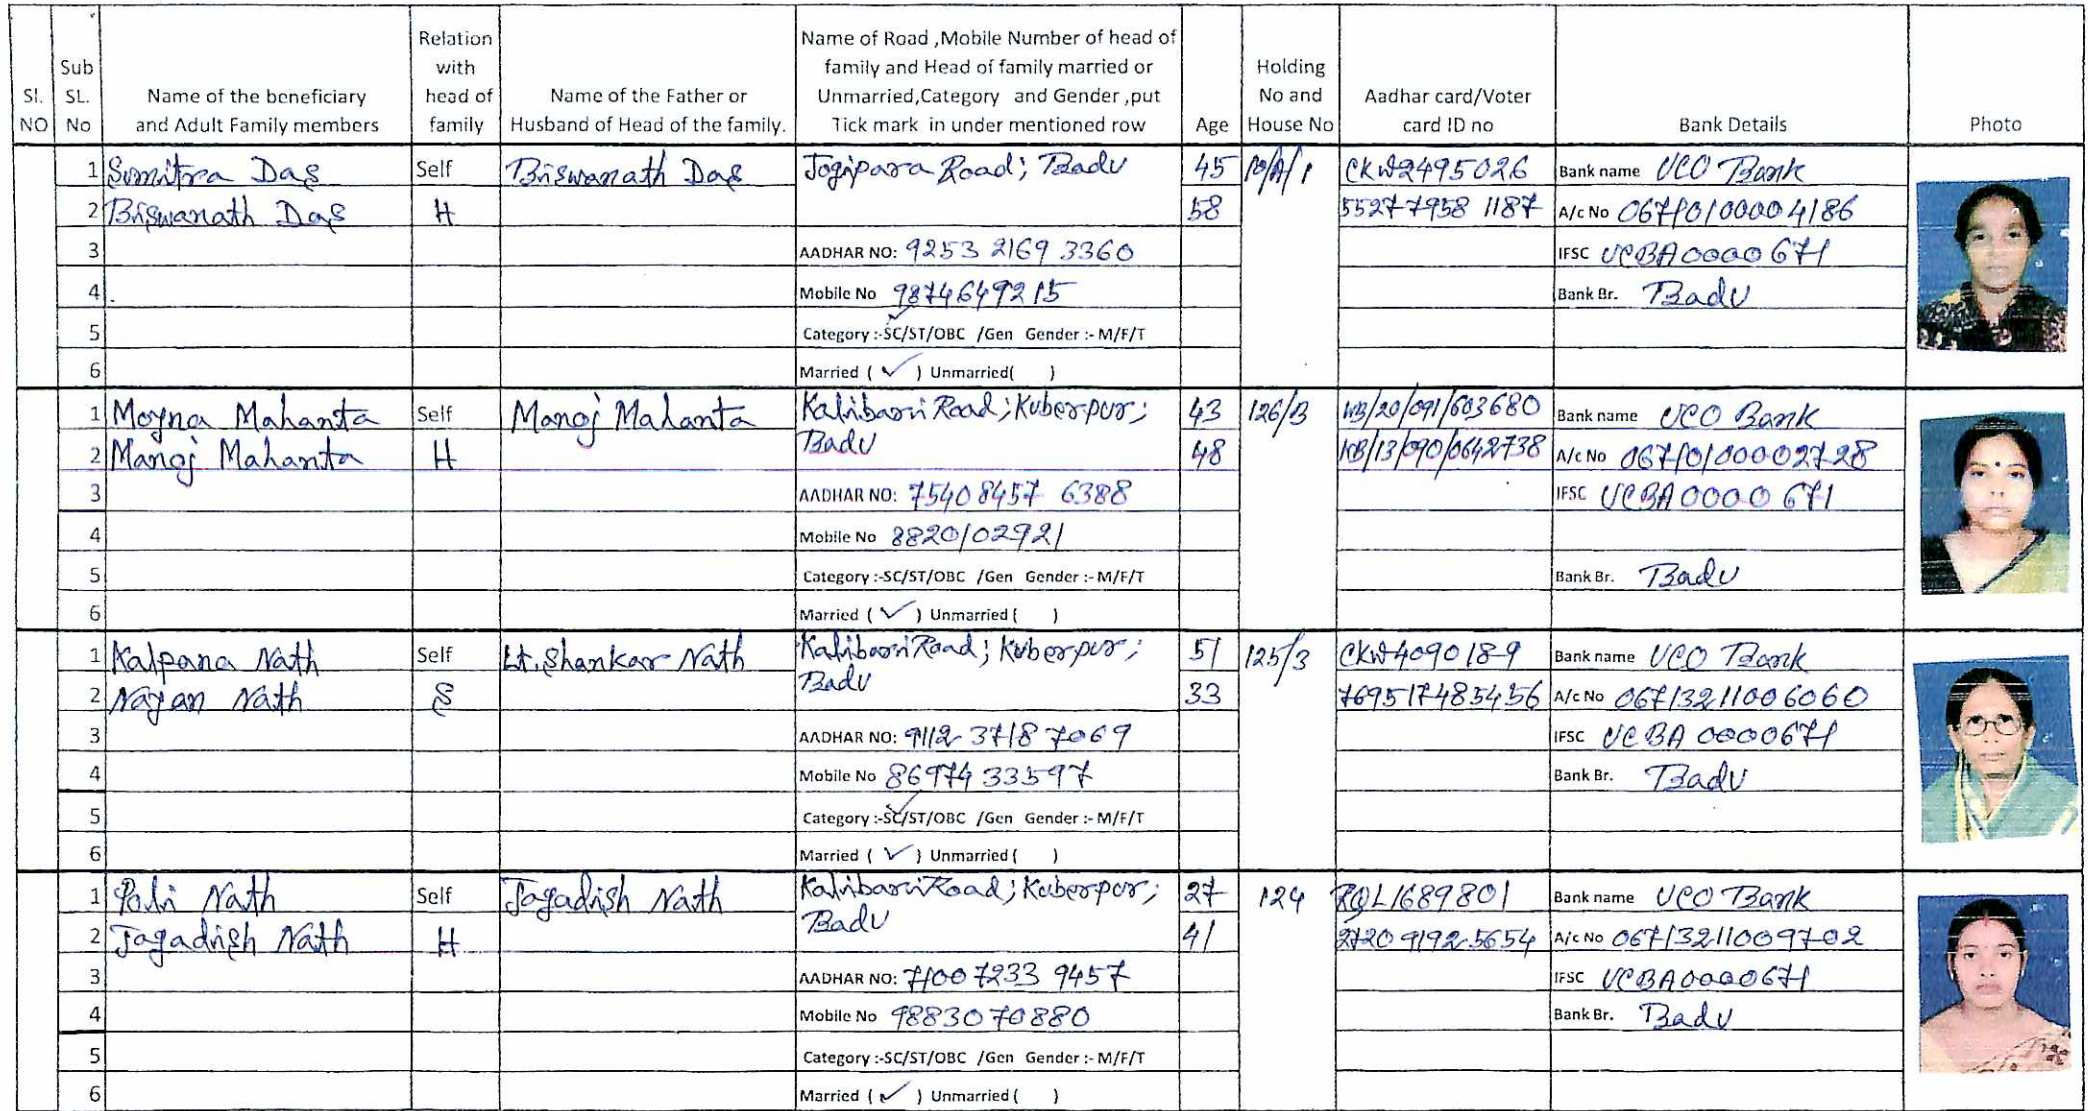 Sl. NO
Sub SL. No
Name of the beneficiary and Adult Family members
Relation with head of family
Name of the Father or Husband of Head of the family.
Name of Road ,Mobile Number of head of family and Head of family married or Unmarried,Category and Gender ,put Tick mark in under mentioned row
Age
Holding No and House No
Aadhar card/Voter card ID no
Bank Details
Photo
1 Sumitra Das Self Biswanath Das Jogipara Road; Badu 45 10/A/1 CKW2495026 Bank name UCO Bank
2 Biswanath Das H 58 5527 7958 1187 A/c No 06710100004186
3 AADHAR NO: 9253 2169 3360 IFSC UCBA0000671
4 Mobile No 9874649215 Bank Br. Badu
5 Category :-SC/ST/OBC /Gen Gender :- M/F/T
6 Married ( ✓ ) Unmarried( )
1 Moyna Mahanta Self Manoj Mahanta Kalibari Road; Kuberpur; 43 126/B WB/20/091/603680 Bank name UCO Bank
Badu
2 Manoj Mahanta H 48 WB/13/090/0642738 A/c No 06710100002728
3 AADHAR NO: 7540 8457 6388 IFSC UCBA0000671
4 Mobile No 8820102921
5 Category :-SC/ST/OBC /Gen Gender :- M/F/T Bank Br. Badu
6 Married ( ✓ ) Unmarried ( )
1 Kalpana Nath Self Lt. Shankar Nath Kalibari Road; Kuberpur; 51 125/3 CKW4090189 Bank name UCO Bank
Badu
2 Nayan Nath S 33 769517485456 A/c No 06713211006060
3 AADHAR NO: 9112 3718 7069 IFSC UCBA0000671
4 Mobile No 8697433597 Bank Br. Badu
5 Category :-SC/ST/OBC /Gen Gender :- M/F/T
6 Married ( ✓ ) Unmarried ( )
1 Poli Nath Self Jagadish Nath Kalibari Road; Kuberpur; 27 124 RQL1689801 Bank name UCO Bank
Badu
2 Jagadish Nath H 41 2720 9192 5654 A/c No 06713211009702
3 AADHAR NO: 7100 7233 9457 IFSC UCBA0000671
4 Mobile No 9883070880 Bank Br. Badu
5 Category :-SC/ST/OBC /Gen Gender :- M/F/T
6 Married ( ✓ ) Unmarried ( )